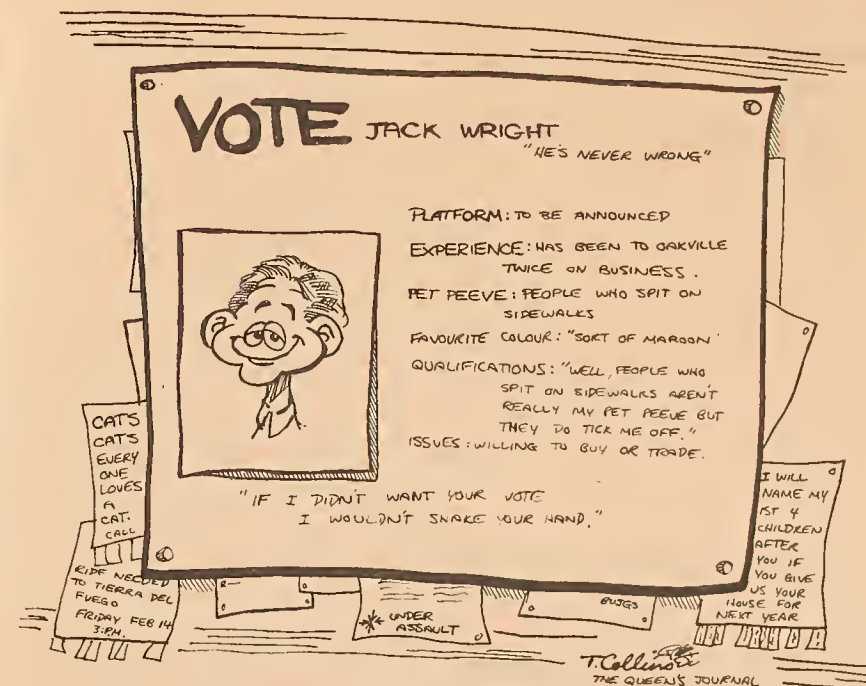 VOTE JACK WRIGHT
"HE'S NEVER WRONG"
PLATFORM: TO BE ANNOUNCED
EXPERIENCE: HAS BEEN TO OAKVILLE
TWICE ON BUSINESS.
PET PEEVE: PEOPLE WHO SPIT ON
SIDEWALKS
FAVOURITE COLOUR: "SORT OF MAROON"
QUALIFICATIONS: "WELL, PEOPLE WHO
SPIT ON SIDEWALKS AREN'T
REALLY MY PET PEEVE BUT
THEY DO TICK ME OFF."
ISSUES: WILLING TO BUY OR TRADE.
"IF I DIDN'T WANT YOUR VOTE
I WOULDN'T SHAKE YOUR HAND."
CATS
CATS
EVERY
ONE
LOVES
A
CAT.
CALL
RIDE NEEDED
TO TIERRA DEL
FUEGO
FRIDAY FEB 14
3:P.M.
R
UNDER
ASSAULT
I WILL
NAME MY
1ST 4
CHILDREN
AFTER
YOU IF
YOU GIVE
US YOUR
HOUSE FOR
NEXT YEAR
T. Collins
THE QUEEN'S JOURNAL